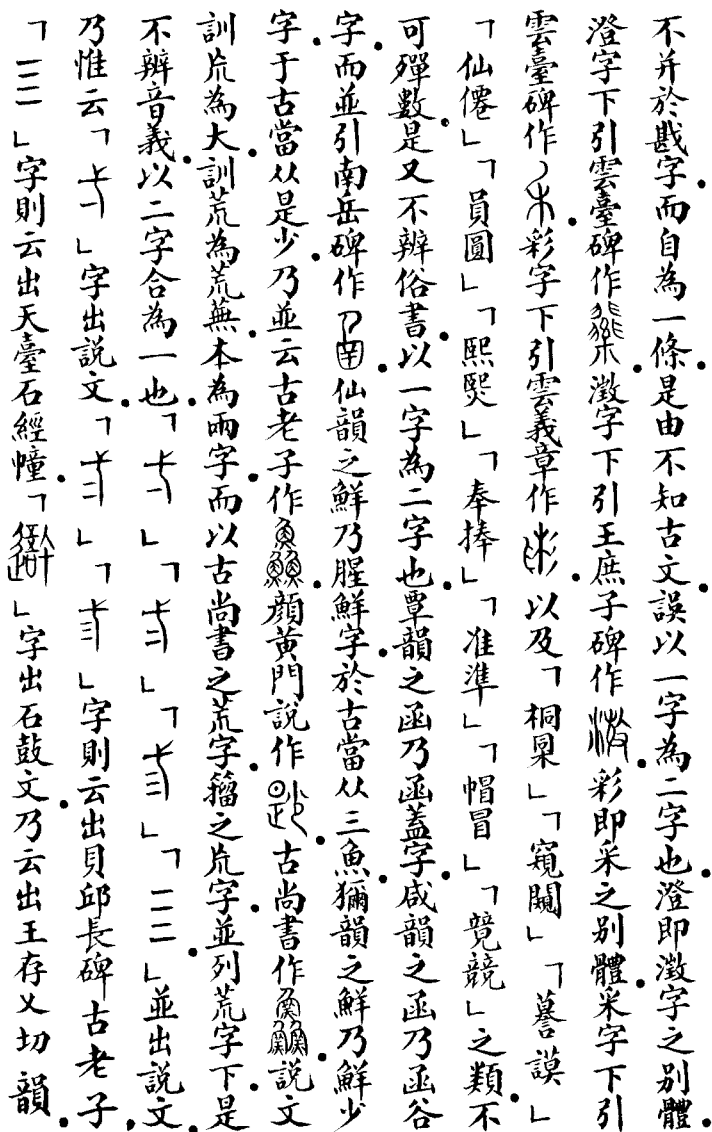 不并於戡字而自為一條是由不知古文誤以一字為二字也澄即澂字之别體
澄字下引雲臺碑作澂字下引王庶子碑作彩即采之别體采字下引
雲臺碑作彩字下引雲義章作以及「桐㮂」「窺闚」「謩謨」
「仙僊」「員圓」「熙煛」「奉捧」「准準」「帽冒」「競競」之類不
可殫數是又不辨俗書以一字為二字也覃韻之函乃函蓋字咸韻之函乃函谷
字而並引南岳碑作仙韻之鮮乃腥鮮字於古當从三魚獮韻之鮮乃鮮少
字于古當从是少乃並云古老子作顔黄門說作古尚書作說文
訓巟為大訓荒為荒蕪本為兩字而以古尚書之荒字籀之巟字並列荒字下是
不辨音義以二字合為一也「」「」「」「」並出説文
乃惟云「」字出説文「」「」字則云出貝邱長碑古老子
「」字則云出天臺石經幢「」字出石鼓文乃云出王存乂切韻